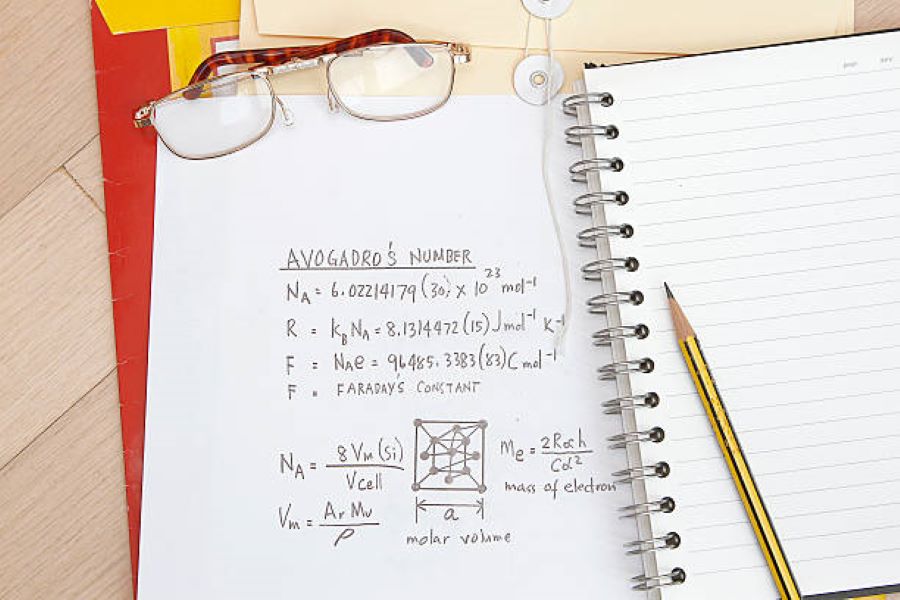 AVOGADRO'S NUMBER
N_A = 6.02214179(30) x 10^23 mol^-1
R = k_B N_A = 8.1314472(15) J mol^-1 K^-1
F = N_A e = 96485.3383(83) C mol^-1
F = FARADAYS CONSTANT
N_A = 8 V_m (Si) / Vcell
m_e = 2R∞h / Cα^2
mass of electron
V_m = A_r M_u / ρ
a
molar volume